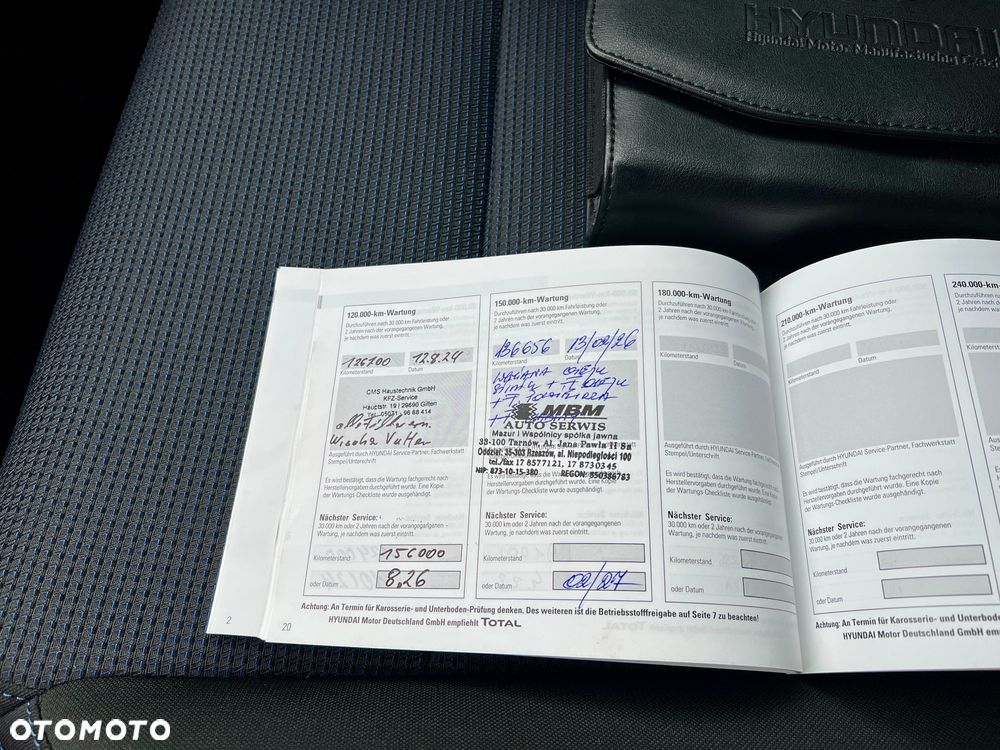 HYUNDAI
Hyundai Motor Manufacturing Czech
120.000-km-Wartung
Durchzuführen nach 30.000 km Fahrleistung oder
2 Jahren nach der vorangegangenen Wartung,
je nachdem was zuerst eintritt.
126100 12.8.24
Kilometerstand Datum
CMS Haustechnik GmbH
KFZ-Service
Hauptstr. 19 | 29690 Gilten
Tel. 05071 - 96 88 414
Ausgeführt durch HYUNDAI Service-Partner, Fachwerkstatt
Stempel/Unterschrift
Es wird bestätigt, dass die Wartung fachgerecht nach
Herstellervorgaben durchgeführt wurde. Eine Kopie
der Wartungs-Checkliste wurde ausgehändigt.
Nächster Service:
30.000 km oder 2 Jahren nach der vorangegangenen
Wartung, je nachdem was zuerst eintritt.
Kilometerstand 156000
oder Datum 8.26
150.000-km-Wartung
Durchzuführen nach 30.000 km Fahrleistung oder
2 Jahren nach der vorangegangenen Wartung,
je nachdem was zuerst eintritt.
136656 13/02/26
Kilometerstand Datum
WYMIANA OLEJU
MBM
AUTO SERWIS
Mazur i Wspólnicy spółka jawna
33-100 Tarnów, Al. Jana Pawła II 8a
Oddział: 35-303 Rzeszów, al. Niepodległości 100
tel./fax 17 8577121, 17 8730345
NIP: 873-10-15-380 REGON: 850386783
Es wird bestätigt, dass die Wartung fachgerecht nach
Herstellervorgaben durchgeführt wurde. Eine Kopie
der Wartungs-Checkliste wurde ausgehändigt.
Nächster Service:
30.000 km oder 2 Jahren nach der vorangegangenen
Wartung, je nachdem was zuerst eintritt.
Kilometerstand
oder Datum 02/27
180.000-km-Wartung
Durchzuführen nach 30.000 km Fahrleistung oder
2 Jahren nach der vorangegangenen Wartung,
je nachdem was zuerst eintritt.
Kilometerstand Datum
Ausgeführt durch HYUNDAI Service-Partner, Fachwerkstatt
Stempel/Unterschrift
Es wird bestätigt, dass die Wartung fachgerecht nach
Herstellervorgaben durchgeführt wurde. Eine Kopie
der Wartungs-Checkliste wurde ausgehändigt.
Nächster Service:
30.000 km oder 2 Jahren nach der vorangegangenen
Wartung, je nachdem was zuerst eintritt.
Kilometerstand
oder Datum
Achtung: An Termin für Karosserie- und Unterboden-Prüfung denken. Des weiteren ist die Betriebsstofffreigabe auf Seite 7 zu beachten!
HYUNDAI Motor Deutschland GmbH empfiehlt TOTAL
2
20
210.000-km-Wartung
Durchzuführen nach 30.000 km Fahrleistung oder
2 Jahren nach der vorangegangenen Wartung,
je nachdem was zuerst eintritt.
Kilometerstand Datum
Ausgeführt durch HYUNDAI Service-Partner, Fachwerkstatt
Stempel/Unterschrift
Es wird bestätigt, dass die Wartung fachgerecht nach
Herstellervorgaben durchgeführt wurde. Eine Kopie
der Wartungs-Checkliste wurde ausgehändigt.
Nächster Service:
30.000 km oder 2 Jahren nach der vorangegangenen
Wartung, je nachdem was zuerst eintritt.
Kilometerstand
oder Datum
240.000-km-
Kilometerstand
Achtung: An Termin für Karosserie- und Unterboden
HYUNDAI Motor Deutschland GmbH
OTOMOTO